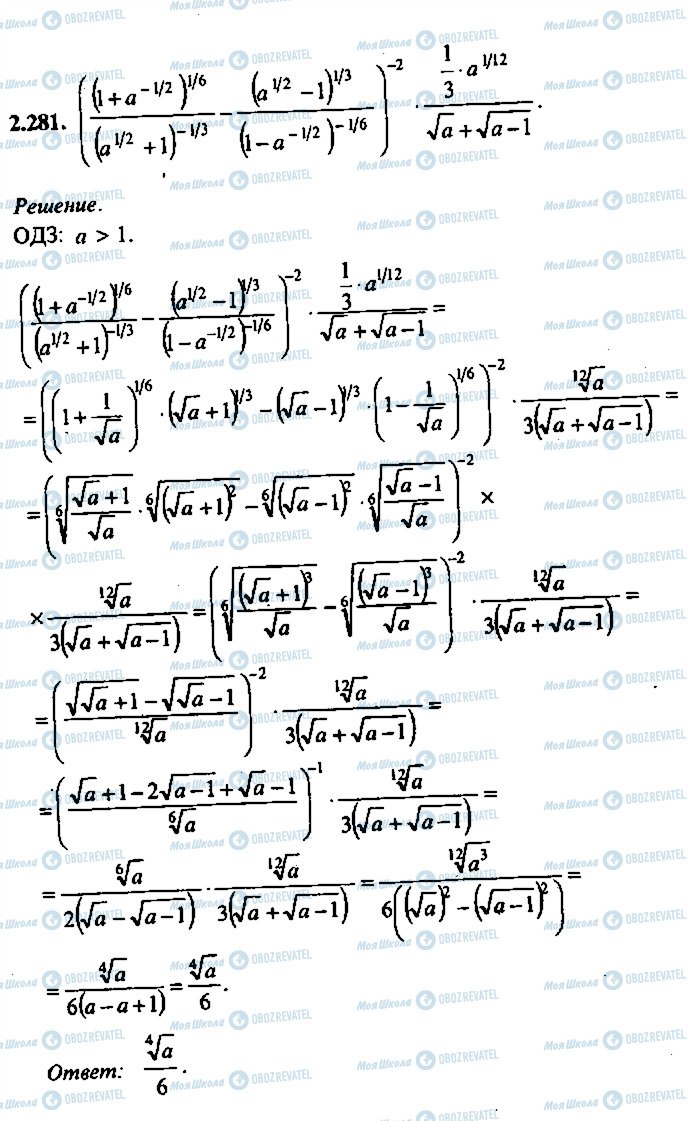 2.281. \left(\frac{(1+a^{-1/2})^{1/6}}{(a^{1/2}+1)^{-1/3}}-\frac{(a^{1/2}-1)^{1/3}}{(1-a^{-1/2})^{-1/6}}\right)^{-2}\cdot\frac{\frac{1}{3}\cdot a^{1/12}}{\sqrt{a}+\sqrt{a-1}}.
Решение.
ОДЗ: a > 1.
\left(\frac{(1+a^{-1/2})^{1/6}}{(a^{1/2}+1)^{-1/3}}-\frac{(a^{1/2}-1)^{1/3}}{(1-a^{-1/2})^{-1/6}}\right)^{-2}\cdot\frac{\frac{1}{3}\cdot a^{1/12}}{\sqrt{a}+\sqrt{a-1}}=
=\left(\left(1+\frac{1}{\sqrt{a}}\right)^{1/6}\cdot(\sqrt{a}+1)^{1/3}-(\sqrt{a}-1)^{1/3}\cdot\left(1-\frac{1}{\sqrt{a}}\right)^{1/6}\right)^{-2}\cdot\frac{\sqrt[12]{a}}{3(\sqrt{a}+\sqrt{a-1})}=
=\left(\sqrt[6]{\frac{\sqrt{a}+1}{\sqrt{a}}}\cdot\sqrt[6]{(\sqrt{a}+1)^2}-\sqrt[6]{(\sqrt{a}-1)^2}\cdot\sqrt[6]{\frac{\sqrt{a}-1}{\sqrt{a}}}\right)^{-2}\times
\times\frac{\sqrt[12]{a}}{3(\sqrt{a}+\sqrt{a-1})}=\left(\sqrt[6]{\frac{(\sqrt{a}+1)^3}{\sqrt{a}}}-\sqrt[6]{\frac{(\sqrt{a}-1)^3}{\sqrt{a}}}\right)^{-2}\cdot\frac{\sqrt[12]{a}}{3(\sqrt{a}+\sqrt{a-1})}=
=\left(\frac{\sqrt{\sqrt{a}+1}-\sqrt{\sqrt{a}-1}}{\sqrt[12]{a}}\right)^{-2}\cdot\frac{\sqrt[12]{a}}{3(\sqrt{a}+\sqrt{a-1})}=
=\left(\frac{\sqrt{a}+1-2\sqrt{a-1}+\sqrt{a}-1}{\sqrt[6]{a}}\right)^{-1}\cdot\frac{\sqrt[12]{a}}{3(\sqrt{a}+\sqrt{a-1})}=
=\frac{\sqrt[6]{a}}{2(\sqrt{a}-\sqrt{a-1})}\cdot\frac{\sqrt[12]{a}}{3(\sqrt{a}+\sqrt{a-1})}=\frac{\sqrt[12]{a^3}}{6((\sqrt{a})^2-(\sqrt{a-1})^2)}=
=\frac{\sqrt[4]{a}}{6(a-a+1)}=\frac{\sqrt[4]{a}}{6}.
Ответ: \frac{\sqrt[4]{a}}{6}.
Моя Школа OBOZREVATEL